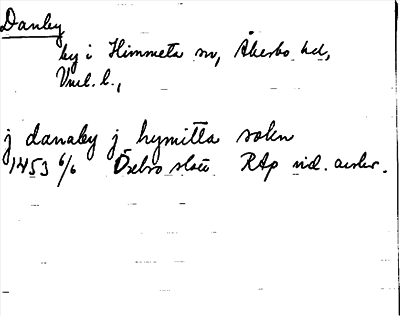 Danby
by i Himmeta sn, Åkerbo hd,
Vml. l.,
j danaby j hymitta sokn
1453 6/6 Örebro slott RAp vid. avskr.